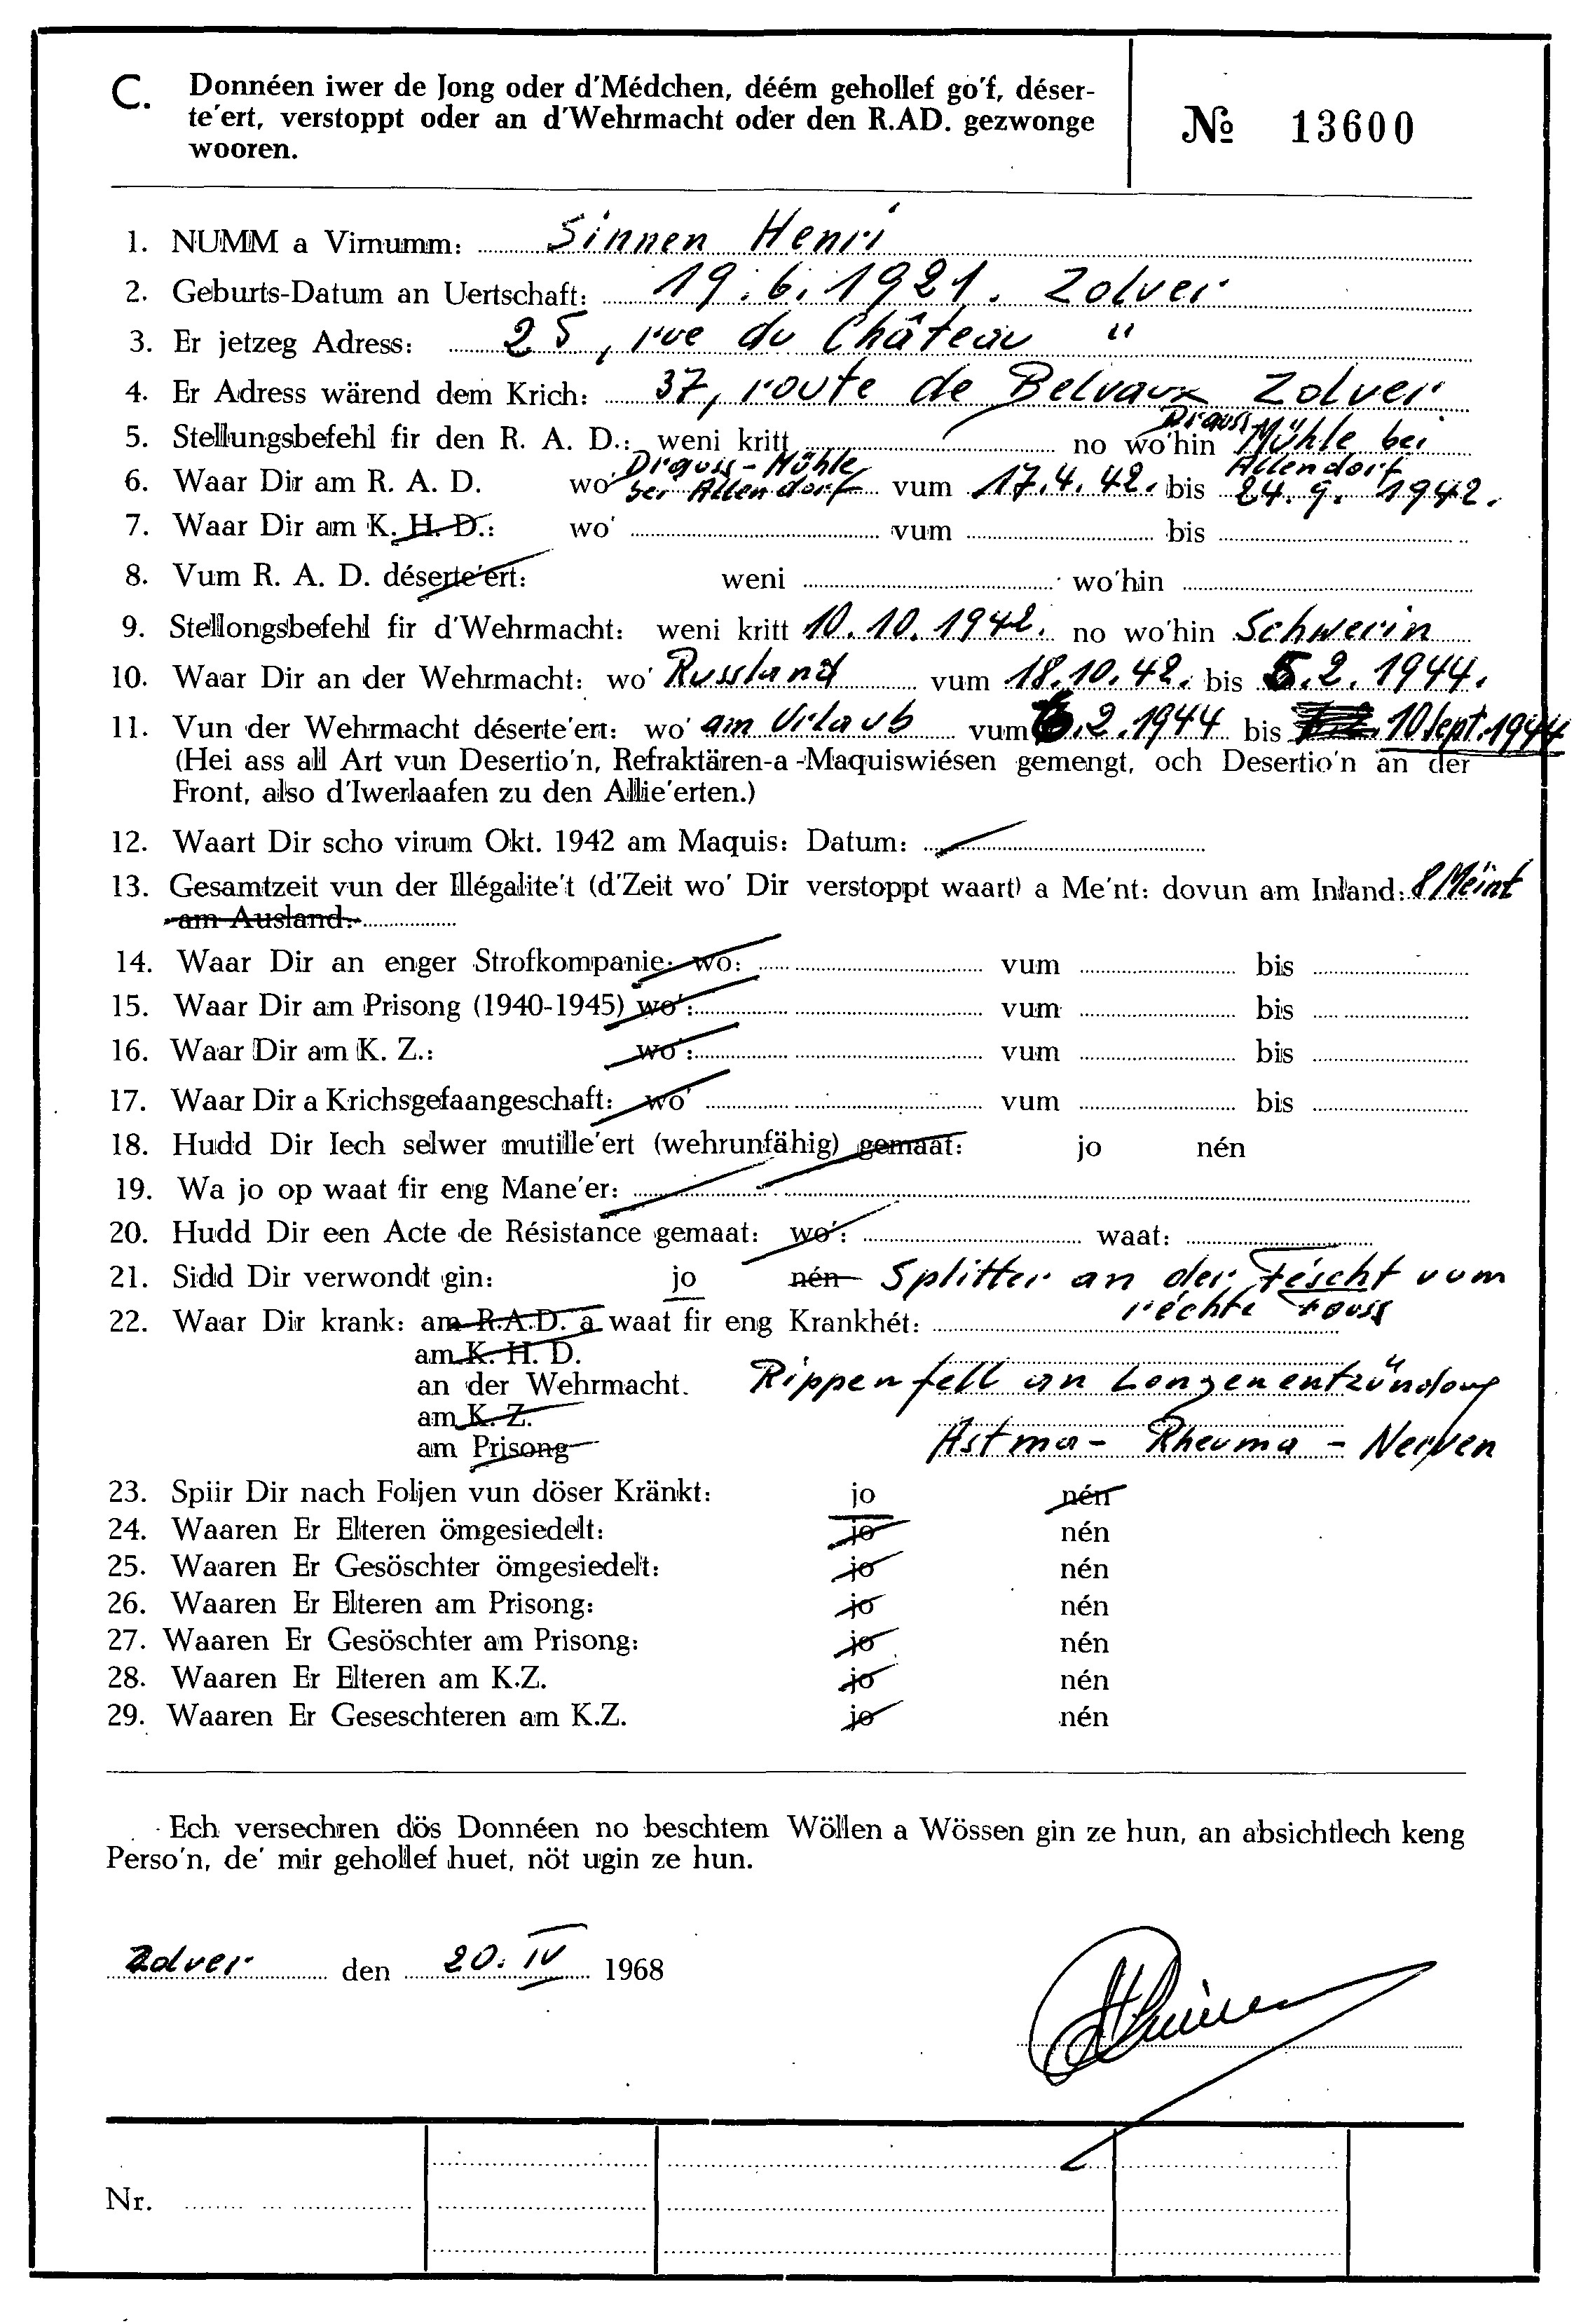 C. Donnéen iwer de Jong oder d'Médchen, déém gehollef go'f, déser-
te'ert, verstoppt oder an d'Wehrmacht oder den R.AD. gezwonge
wooren.
№ 13600
1. NUMM a Virnumm: Sinnen Henri
2. Geburts-Datum an Uertschaft: 19.6.1921. Zolver
3. Er jetzeg Adress: 25, rue du Château "
4. Er Adress wärend dem Krich: 37, route de Belvaux Zolver
5. Stellungsbefehl fir den R. A. D.: weni kritt no wo'hin Drauss-Mühle bei Allendorf
6. Waar Dir am R. A. D. wo' Drauss-Mühle bei Allendorf vum 17.4.42. bis 24.9.1942.
7. Waar Dir am K. H. D.: wo' vum bis
8. Vum R. A. D. déserte'ert: weni wo'hin
9. Stellongsbefehl fir d'Wehrmacht: weni kritt 10.10.1942. no wo'hin Schwerin
10. Waar Dir an der Wehrmacht: wo' Russland vum 18.10.42. bis 5.2.1944.
11. Vun der Wehrmacht déserte'ert: wo' am Urlaub vum 6.2.1944 bis 10 Sept. 1944
(Hei ass all Art vun Desertio'n, Refraktären-a -Maquiswiésen gemengt, och Desertio'n an der
Front, also d'Iwerlaafen zu den Allie'erten.)
12. Waart Dir scho virum Okt. 1942 am Maquis: Datum:
13. Gesamtzeit vun der Illégalite't (d'Zeit wo' Dir verstoppt waart) a Me'nt: dovun am Inland: 8 Méint
am Ausland:
14. Waar Dir an enger Strofkompanie: wo: vum bis
15. Waar Dir am Prisong (1940-1945) wo': vum bis
16. Waar Dir am K. Z.: wo': vum bis
17. Waar Dir a Krichsgefaangeschaft: wo' vum bis
18. Hudd Dir Iech selwer mutille'ert (wehrunfähig) gemaat: jo nén
19. Wa jo op waat fir eng Mane'er:
20. Hudd Dir een Acte de Résistance gemaat: wo': waat:
21. Sidd Dir verwondt gin: jo nén Splitter an der Féscht vum
rechte Fouss
22. Waar Dir krank: am R.A.D. a waat fir eng Krankhét:
am K. H. D.
an der Wehrmacht. Rippenfell an Longenentzündong
am K. Z.
am Prisong Astma - Rheuma - Nerven
23. Spiir Dir nach Foljen vun döser Kränkt: jo nén
24. Waaren Er Elteren ömgesiedelt: jo nén
25. Waaren Er Gesöschter ömgesiedelt: jo nén
26. Waaren Er Elteren am Prisong: jo nén
27. Waaren Er Gesöschter am Prisong: jo nén
28. Waaren Er Elteren am K.Z. jo nén
29. Waaren Er Geseschteren am K.Z. jo nén
Ech versechren dös Donnéen no beschtem Wöllen a Wössen gin ze hun, an absichtlech keng
Perso'n, de' mir gehollef huet, nöt ugin ze hun.
Zolver den 20. IV 1968
Nr.